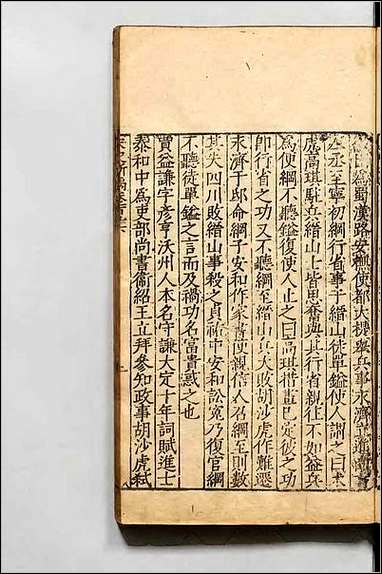 為蜀漢路安撫使都大提舉兵事永濟
左丞至寧初綱行省事于縉山徒單鎰使人謂之曰
虎高琪駐兵縉山士皆思奮與其行省親往不如益兵
為便綱不聽鎰復使人止之曰高琪措畫已定彼之功
即行省之功又不聽綱至縉山兵大敗胡沙虎作難遷
永濟于邸命綱子安和作家書使親信人召綱至則數
其失四川敗縉山事殺之貞祐中安和訟冤乃復官綱
不聽徒單鎰之言而及禍功名富貴惑之也
賈益謙字彥亨沃州人本名守謙大定十年詞賦進士
泰和中為吏部尚書衞紹王立拜參知政事胡沙虎弒